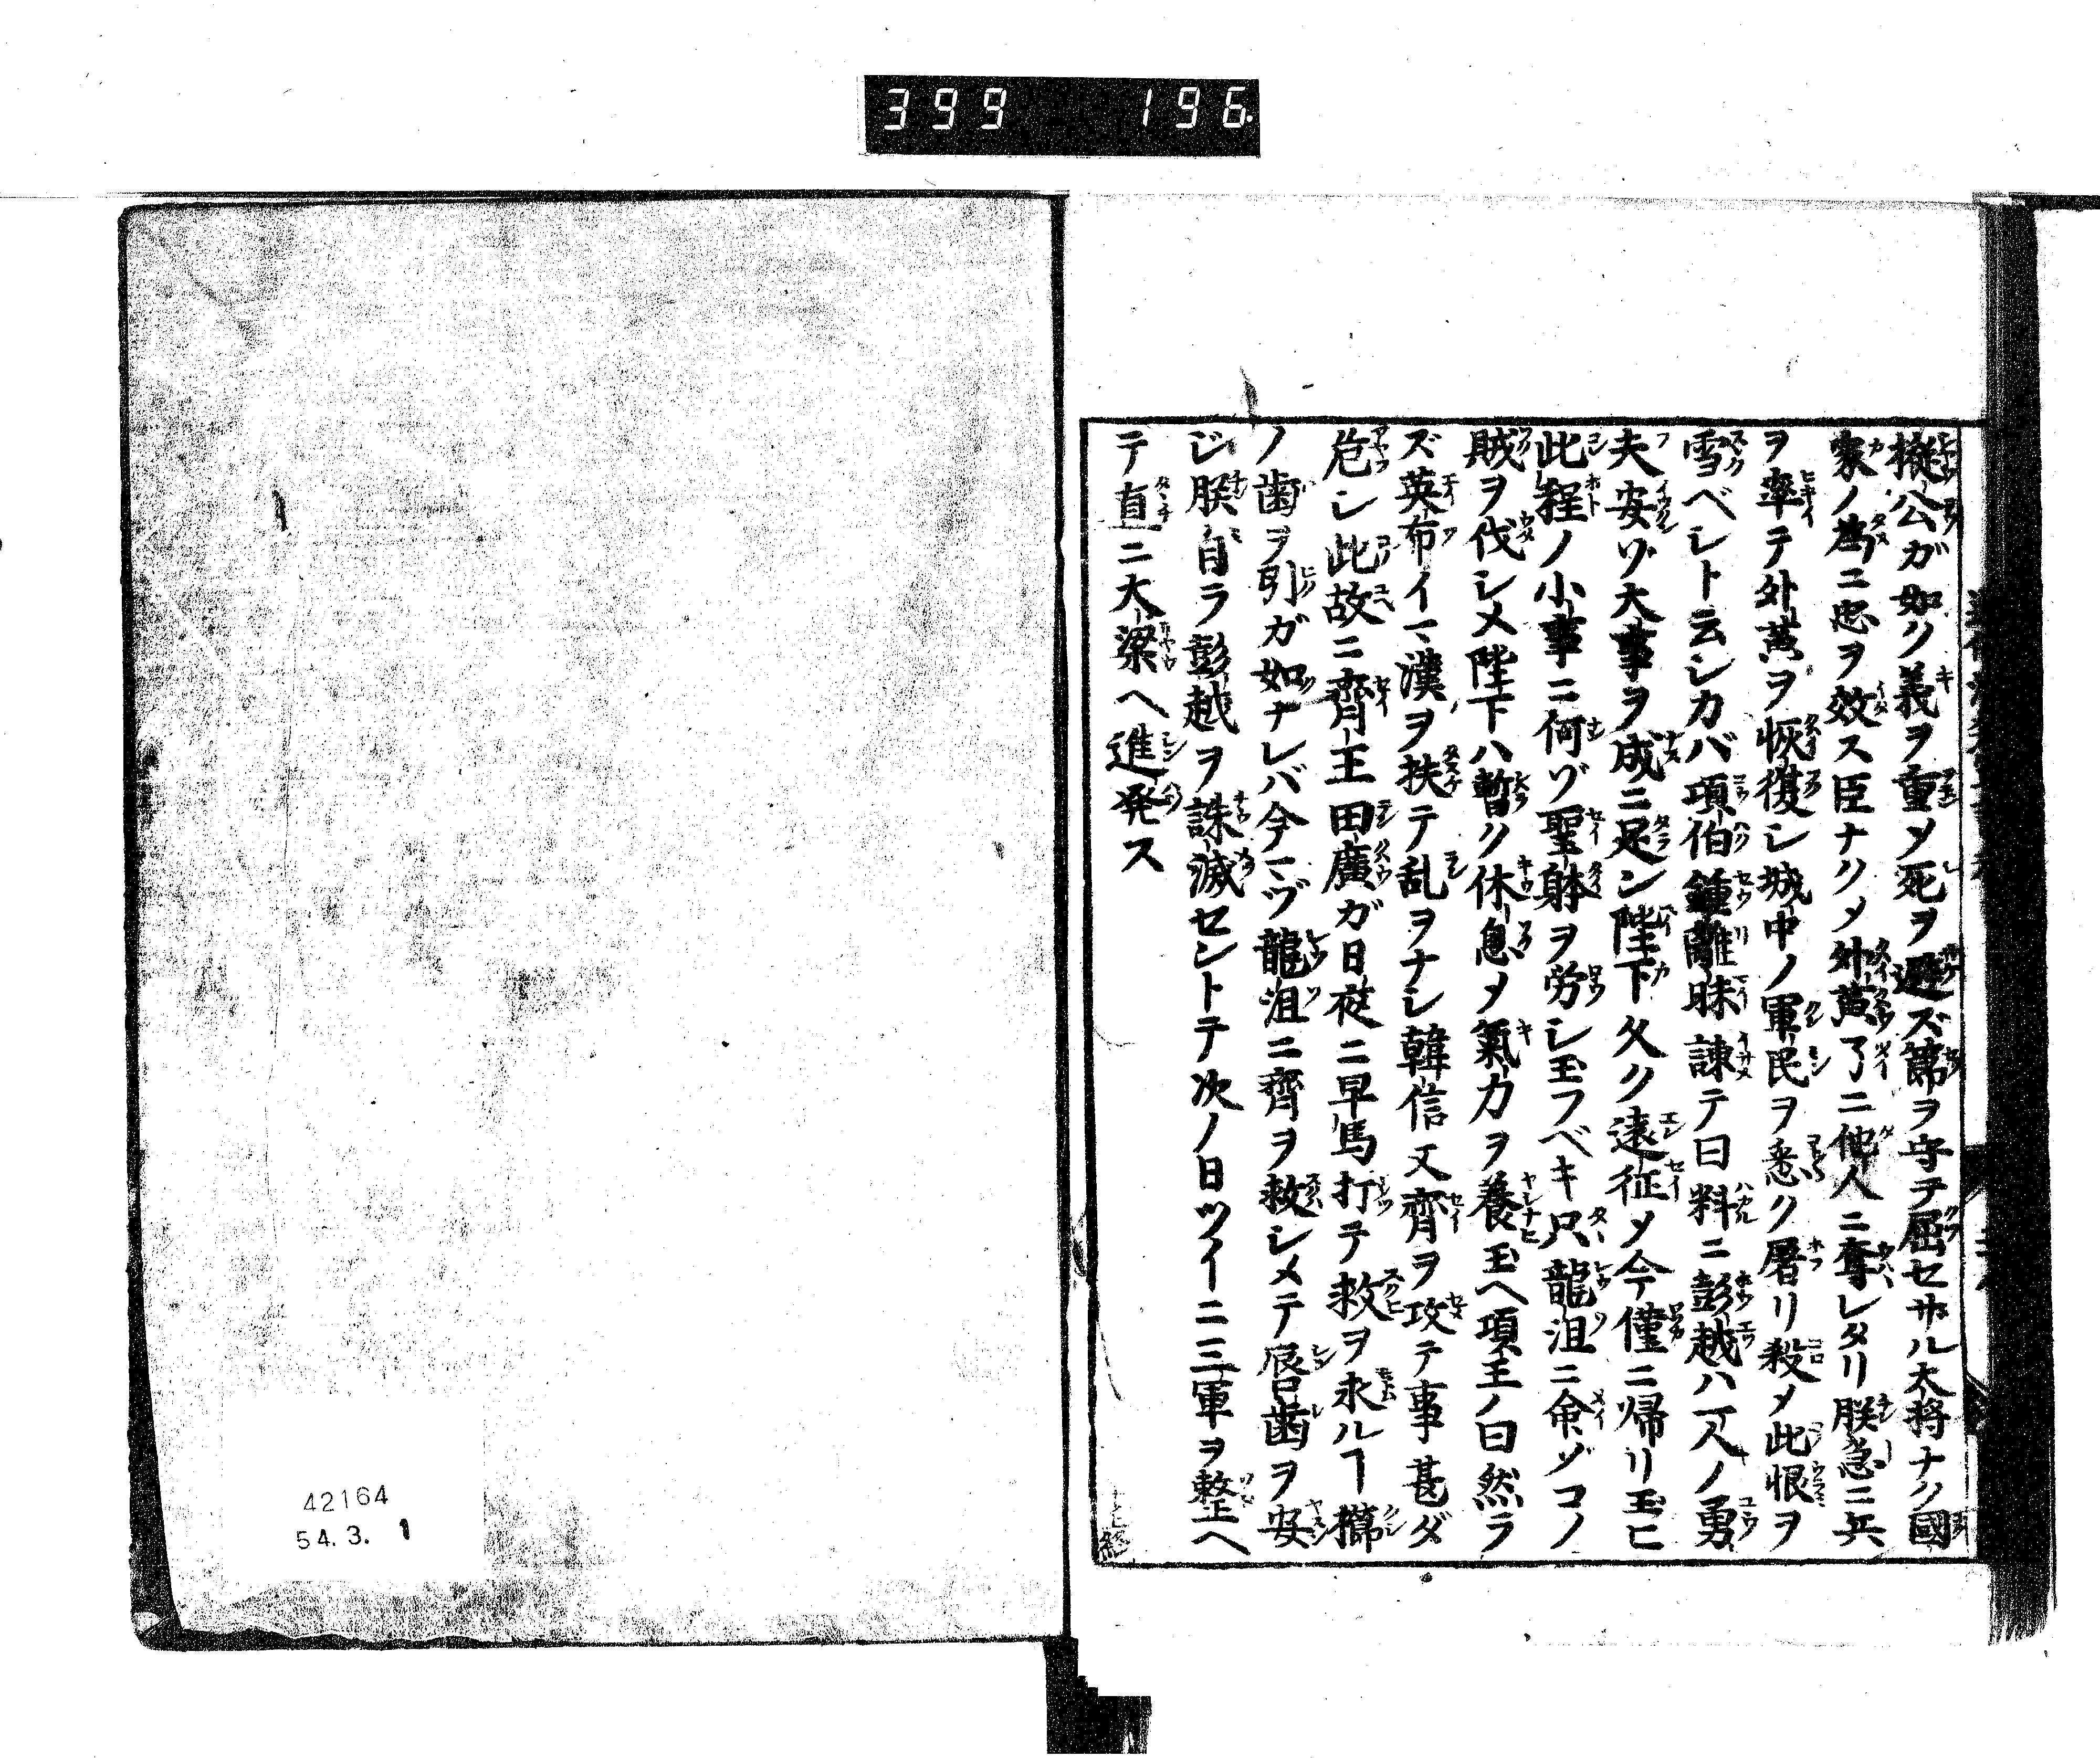 399 196
樅公ガ如ク義ヲ重メ死ヲ避ズ節ヲ守テ屈セザル大将ナク國
家ノ為ニ忠ヲ效ス臣ナクメ外黄了ニ他人ニ奪レタリ朕急ニ兵
ヲ率テ外黄ヲ恢復シ城中ノ軍民ヲ悉ク屠リ殺メ此恨ヲ
雪ベシト云シカバ項伯鍾離昧諌テ曰料ニ彭越ハ一人ノ勇
夫安ゾ大事ヲ成ニ足ン陛下久ク遠征メ今僅ニ帰リ玉ヒ
此程ノ小事ニ何ゾ聖躰ヲ労シ玉フベキ只龍沮ニ命ゾコノ
賊ヲ伐シメ陛下ハ暫ク休息メ氣力ヲ養玉ヘ項王ノ曰然ラ
ズ英布イマ漢ヲ扶テ乱ヲナシ韓信又齊ヲ攻テ事甚ダ
危シ此故ニ齊王田廣ガ日夜ニ早馬打テ救ヲ求ルヿ櫛
ノ歯ヲ引ガ如ナレバ今マヅ龍沮ニ齊ヲ救シメテ唇歯ヲ安
ジ朕自ラ彭越ヲ誅滅セントテ次ノ日ツイニ三軍ヲ整ヘ
テ直ニ大梁ヘ進発ス
42164
54.3. 1